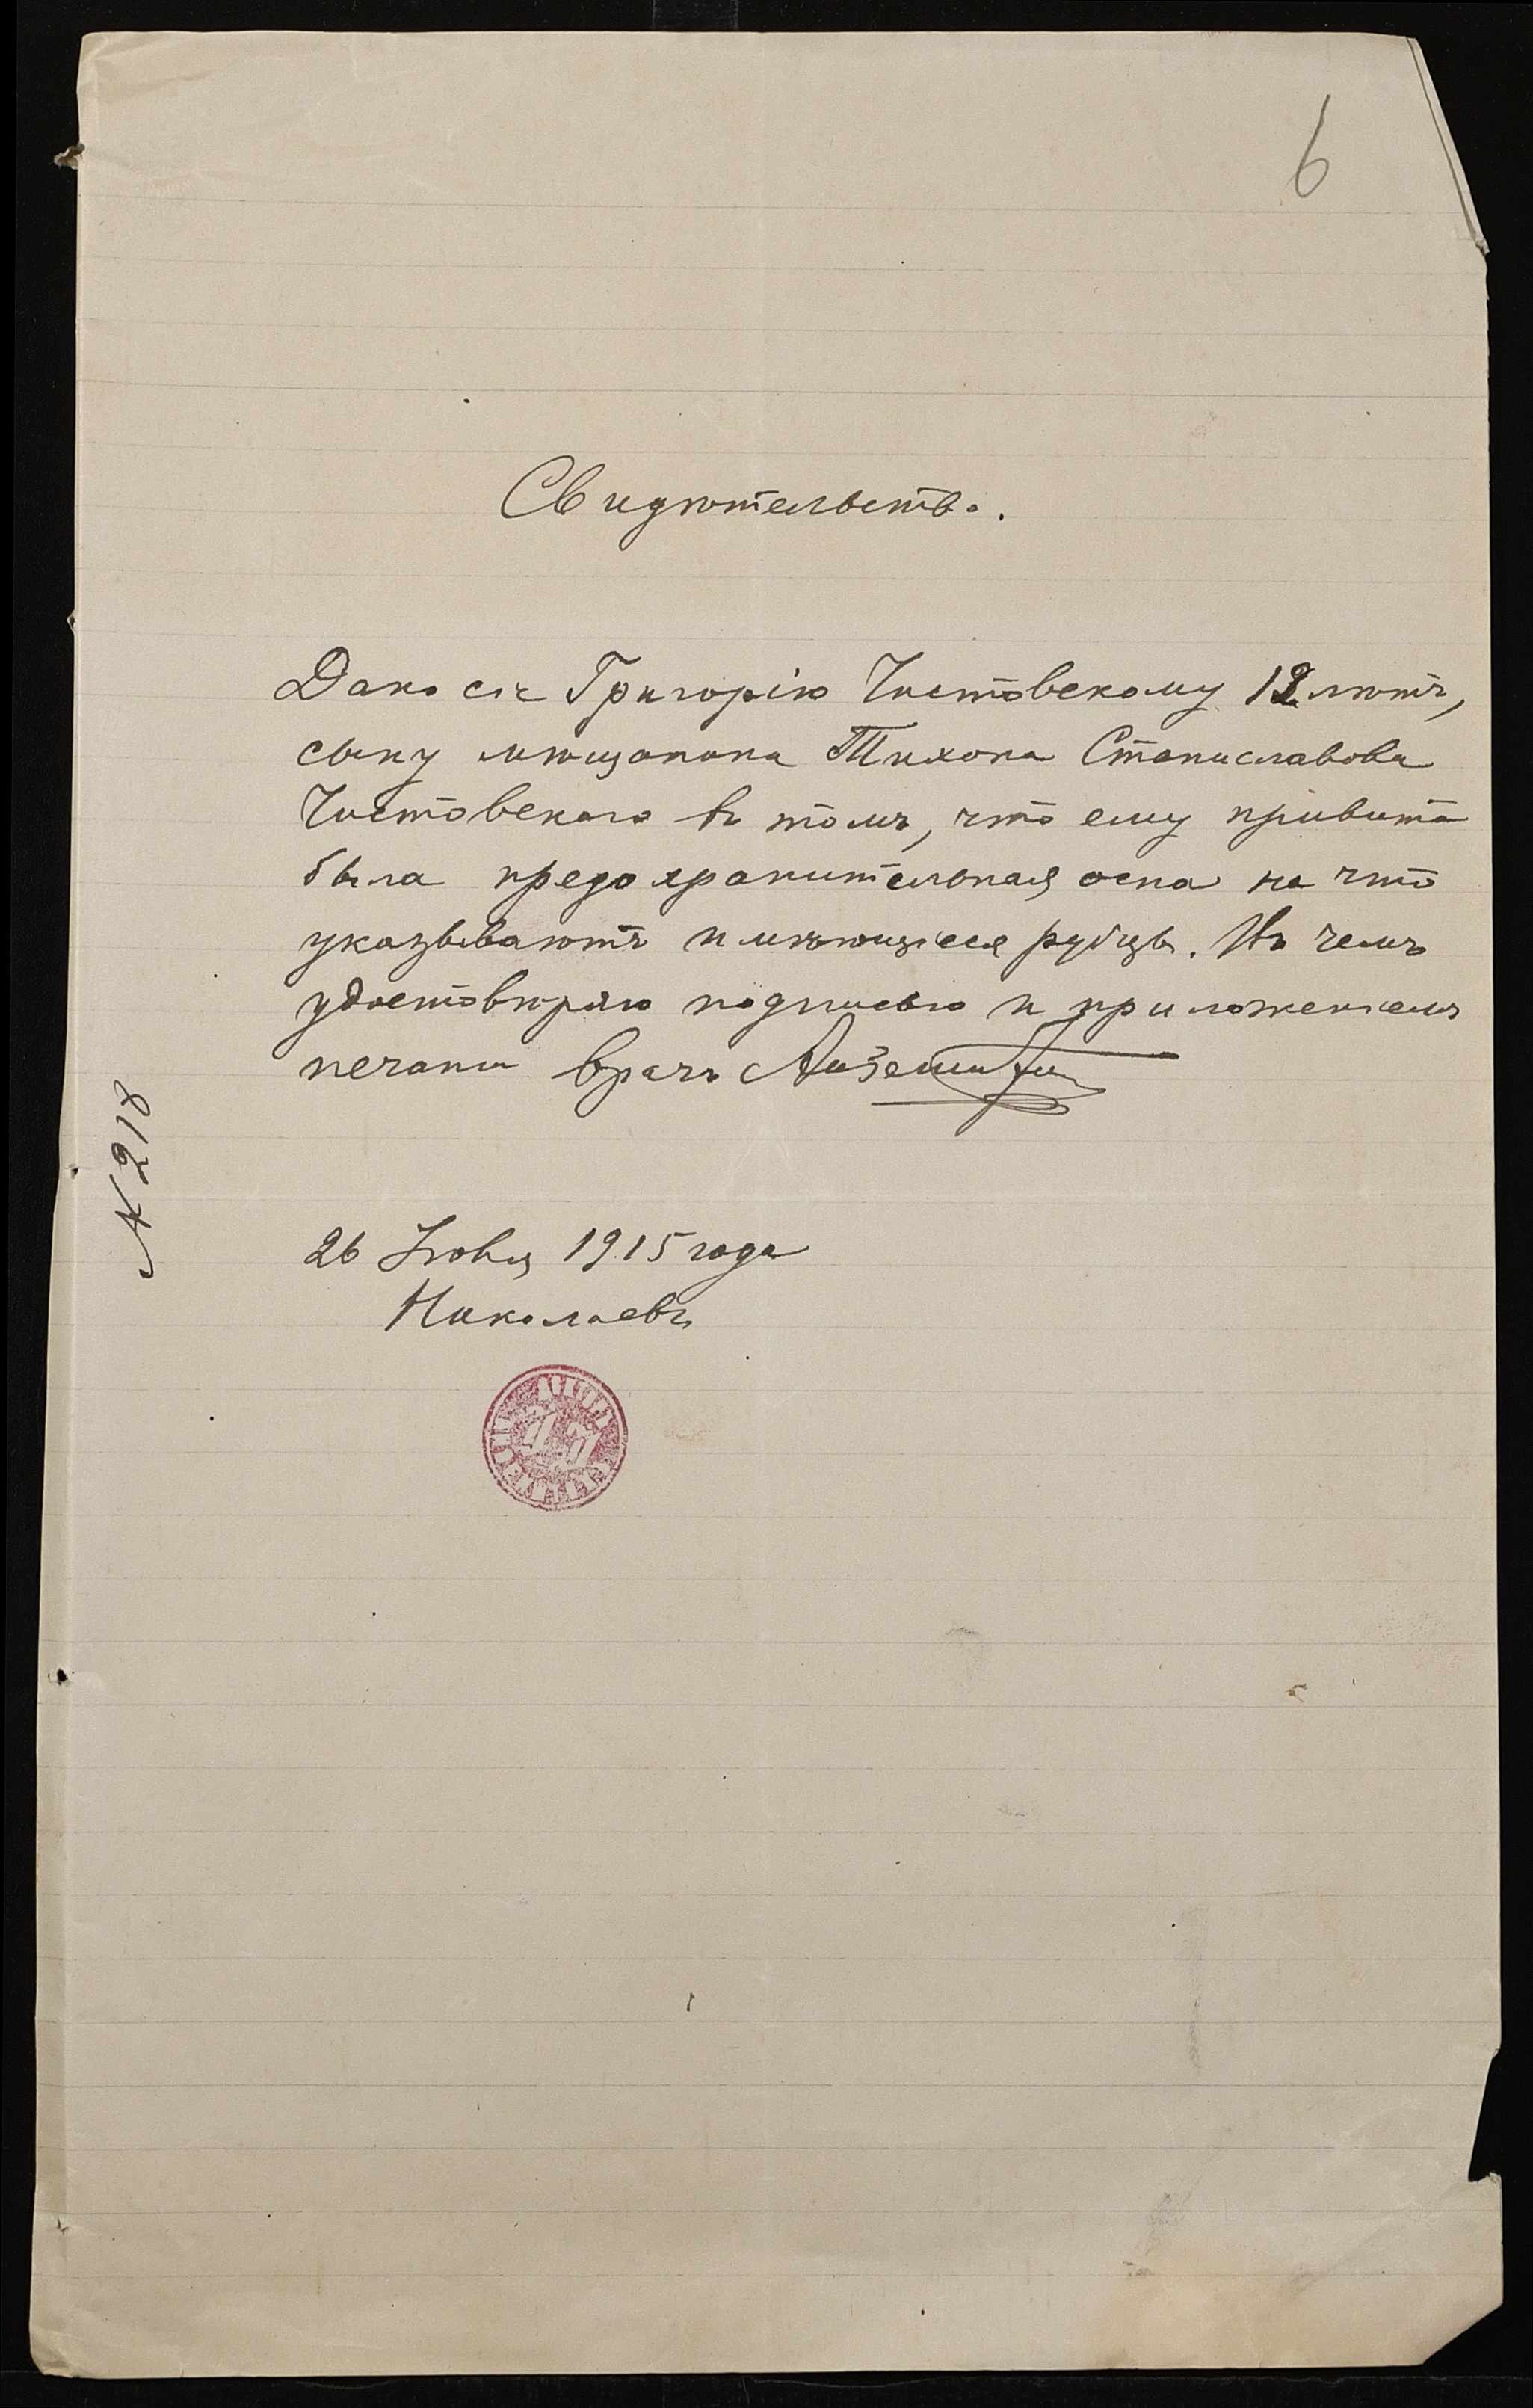 6
Свидѣтельство.
Дано сіе Григорію Чистовскому 12 лѣтъ,
сыну мѣщанина Тихона Станиславова
Чистовскаго въ томъ, что ему привита
была предохранительная оспа на что
указываютъ имѣющіеся рубцы. Въ чемъ
удостовѣряю подписью и приложеніемъ
печати врачъ
26 Іюня 1915 года
Николаевъ
№ 218